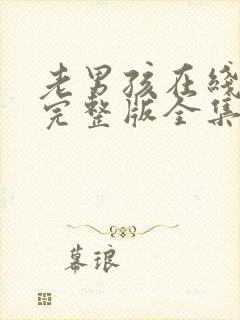 老男孩在线
完整版全集
幕琅